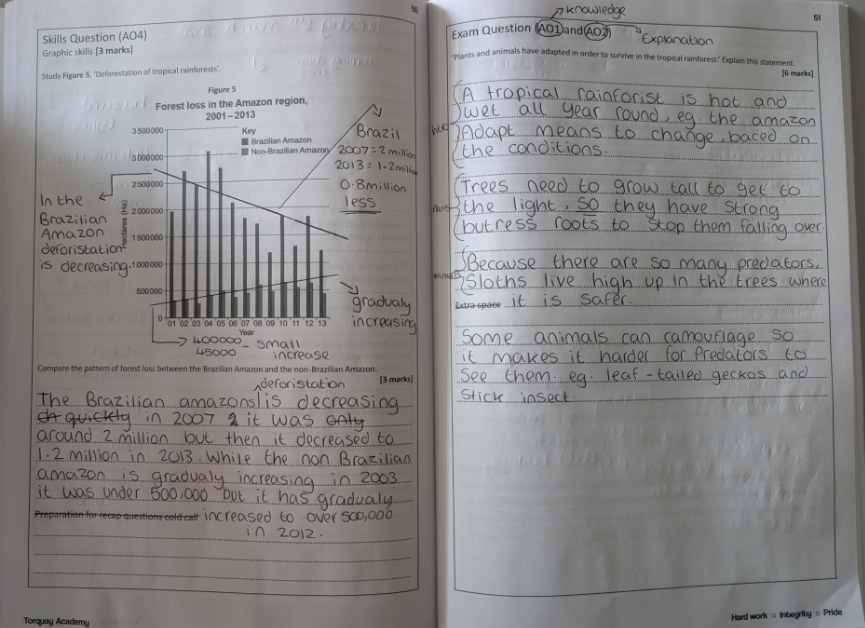 50
Skills Question (AO4)
Graphic skills [3 marks]
Study Figure 5, 'Deforestation of tropical rainforests'.
Figure 5
Forest loss in the Amazon region,
2001–2013
Key
Brazilian Amazon
Non-Brazilian Amazon
Hectares (Ha)
3500000
3000000
2500000
2000000
1500000
1000000
500000
0
01 02 03 04 05 06 07 08 09 10 11 12 13
Year
Brazil
2007=2million
2013=1.2million
0.8million
less
In the
Brazilian
Amazon
deforistation
is decreasing.
gradualy
increasing
400000 - small
45000 increase
Compare the pattern of forest loss between the Brazilian Amazon and the non-Brazilian Amazon.
[3 marks]
deforistation
The Brazilian amazons is decreasing
quickly in 2007 it was only
around 2 million but then it decreased to
1.2 million in 2013. While the non Brazilian
amazon is gradualy increasing in 2003
it was under 500,000 but it has gradualy
Preparation for recap questions cold call increased to over 500,000
in 2012.
Torquay Academy
51
knowledge
Exam Question (AO1) and (AO2)
Explanation
'Plants and animals have adapted in order to survive in the tropical rainforest.' Explain this statement.
[6 marks]
A tropical rainforist is hot and
wet all year round, eg. the amazon
Adapt means to change, baced on
the conditions.
Trees need to grow tall to get to
the light, so they have strong
butress roots to stop them falling over.
Because there are so many predators,
Sloths live high up in the trees where
Extra space it is safer.
Some animals can camouflage so
it makes it harder for predators to
see them. eg. leaf-tailed geckos and
stick insect.
Hard work Integrity Pride